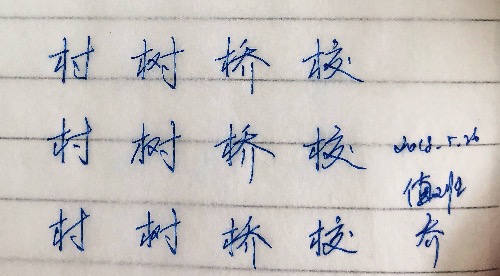 村 树 桥 校
村 树 桥 校
2018.5.26
值班
村 树 桥 校